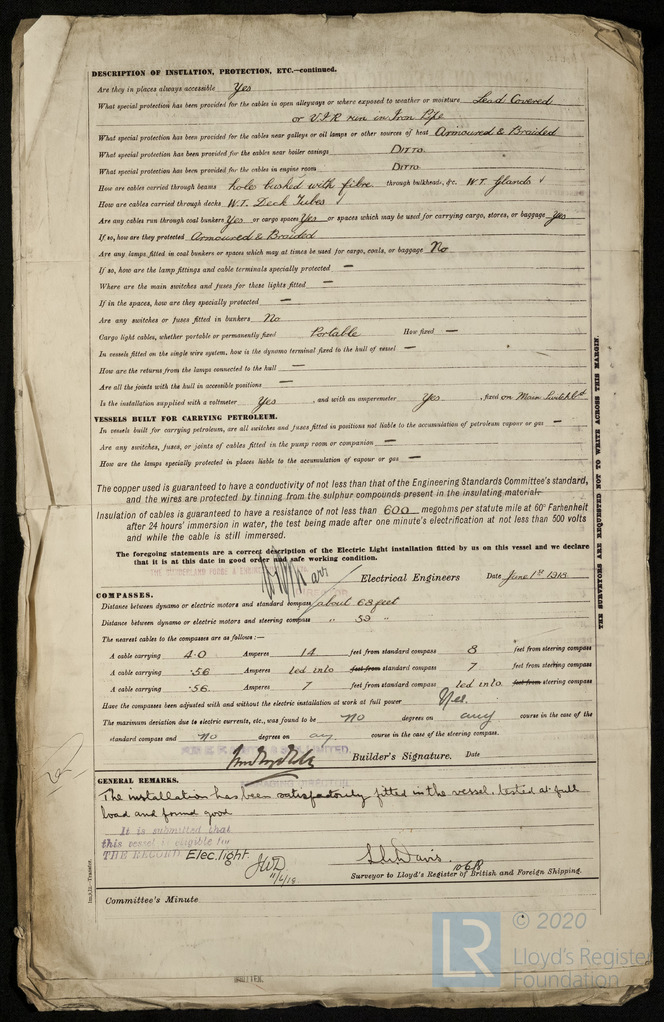 DESCRIPTION OF INSULATION, PROTECTION, ETC.—continued.
Are they in places always accessible Yes
What special protection has been provided for the cables in open alleyways or where exposed to weather or moisture Lead Covered
or V.I.R run in Iron Pipe
What special protection has been provided for the cables near galleys or oil lamps or other sources of heat Armoured & Braided
What special protection has been provided for the cables near boiler casings Ditto.
What special protection has been provided for the cables in engine room Ditto.
How are cables carried through beams hole bushed with fibre. through bulkheads, &c. W.T. Glands √
How are cables carried through decks W.T. Deck Tubes √
Are any cables run through coal bunkers Yes or cargo spaces Yes or spaces which may be used for carrying cargo, stores, or baggage Yes
If so, how are they protected Armoured & Braided
Are any lamps fitted in coal bunkers or spaces which may at times be used for cargo, coals, or baggage No
If so, how are the lamp fittings and cable terminals specially protected —
Where are the main switches and fuses for these lights fitted —
If in the spaces, how are they specially protected —
Are any switches or fuses fitted in bunkers No
Cargo light cables, whether portable or permanently fixed Portable How fixed —
In vessels fitted on the single wire system, how is the dynamo terminal fixed to the hull of vessel —
How are the returns from the lamps connected to the hull —
Are all the joints with the hull in accessible positions —
Is the installation supplied with a voltmeter Yes , and with an amperemeter Yes , fixed on Main Switchbd
VESSELS BUILT FOR CARRYING PETROLEUM.
In vessels built for carrying petroleum, are all switches and fuses fitted in positions not liable to the accumulation of petroleum vapour or gas —
Are any switches, fuses, or joints of cables fitted in the pump room or companion —
How are the lamps specially protected in places liable to the accumulation of vapour or gas —
The copper used is guaranteed to have a conductivity of not less than that of the Engineering Standards Committee's standard,
and the wires are protected by tinning from the sulphur compounds present in the insulating material.
Insulation of cables is guaranteed to have a resistance of not less than 600 megohms per statute mile at 60° Farhenheit
after 24 hours' immersion in water, the test being made after one minute's electrification at not less than 500 volts
and while the cable is still immersed.
The foregoing statements are a correct description of the Electric Light installation fitted by us on this vessel and we declare
that it is at this date in good order and safe working condition.
Electrical Engineers Date June 1st 1918
COMPASSES.
Distance between dynamo or electric motors and standard compass about 68 feet
Distance between dynamo or electric motors and steering compass " 59 "
The nearest cables to the compasses are as follows:—
A cable carrying 4.0 Amperes 14 feet from standard compass 8 feet from steering compass
A cable carrying .56 Amperes led into feet from standard compass 7 feet from steering compass
A cable carrying .56. Amperes 7 feet from standard compass led into feet from steering compass
Have the compasses been adjusted with and without the electric installation at work at full power Yes.
The maximum deviation due to electric currents, etc., was found to be no degrees on any course in the case of the
standard compass and no degrees on any course in the case of the steering compass.
Builder's Signature. Date
GENERAL REMARKS.
The installation has been satisfactorily fitted in the vessel, tested at full
load and found good
It is submitted that
this vessel is eligible for
THE RECORD Elec. light.
JWD
11/6/18
Davis.
Surveyor to Lloyd's Register of British and Foreign Shipping.
Committee's Minute
THE SURVEYORS ARE REQUESTED NOT TO WRITE ACROSS THIS MARGIN.
LR
© 2020
Lloyd's Register
Foundation